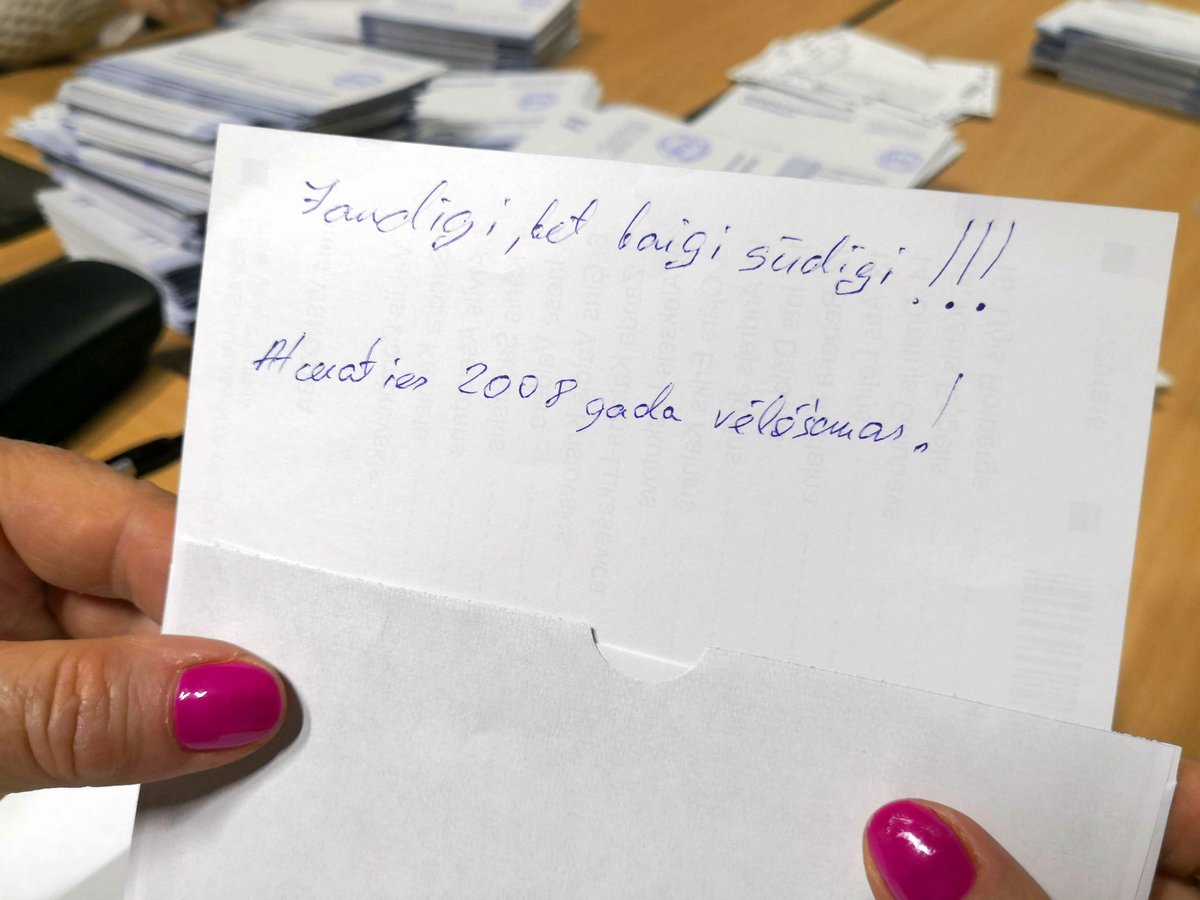 Jaudigi, bet baigi sūdigi !!!
Atceraties 2008 gada vēlēšanas!